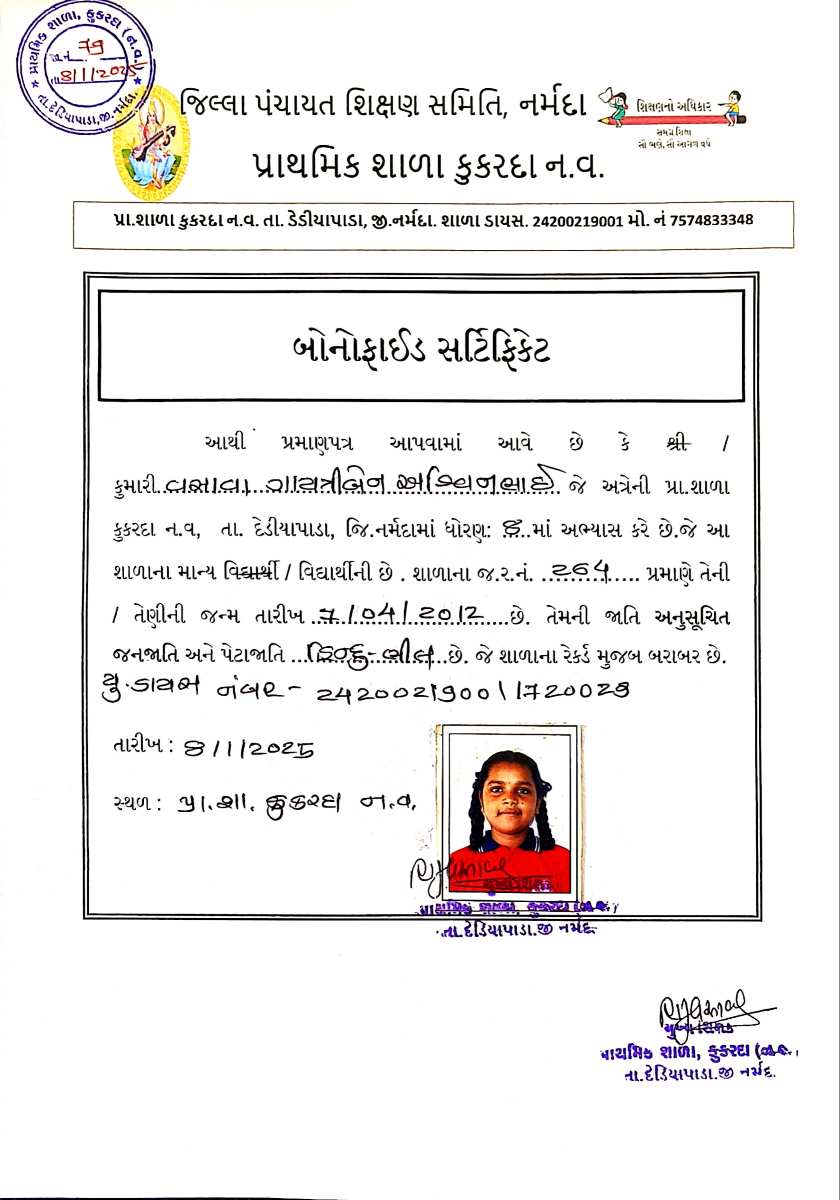 પ્રાથમિક શાળા, કુકરદા (ન.વ.)
જા.નં. 79
તા. 8/1/2025
તા.દેડિયાપાડા,જી.નર્મદા.
જિલ્લા પંચાયત શિક્ષણ સમિતિ, નર્મદા
શિક્ષણનો અધિકાર
સમગ્ર શિક્ષા
સૌ ભણે, સૌ આગળ વધે
પ્રાથમિક શાળા કુકરદા ન.વ.
પ્રા.શાળા કુકરદા ન.વ. તા. ડેડીયાપાડા, જી.નર્મદા. શાળા ડાયસ. 24200219001 મો. નં 7574833348
બોનોફાઈડ સર્ટિફિકેટ
આથી પ્રમાણપત્ર આપવામાં આવે છે કે શ્રી /
કુમારી વસાવા ગાયત્રીબેન અશ્વિનભાઈ જે અત્રેની પ્રા.શાળા
કુકરદા ન.વ, તા. દેડીયાપાડા, જિ.નર્મદામાં ધોરણ: 8 માં અભ્યાસ કરે છે.જે આ
શાળાના માન્ય વિદ્યાર્થી / વિદ્યાર્થીની છે . શાળાના જ.ર.નં. 264 પ્રમાણે તેની
/ તેણીની જન્મ તારીખ 7/04/2012 છે. તેમની જાતિ અનુસૂચિત
જનજાતિ અને પેટાજાતિ હિન્દુ-ભીલ છે. જે શાળાના રેકર્ડ મુજબ બરાબર છે.
યુ.ડાયસ નંબર - 242002190011720028
તારીખ : 8/1/2025
સ્થળ : પ્રા.શા. કુકરદા ન.વ.
પ્રાથમિક શાળા, કુકરદા (ન.વ.)
તા.દેડિયાપાડા.જી નર્મદ.
મુખ્ય શિક્ષક
પ્રાથમિક શાળા, કુકરદા (ન.વ.)
તા.દેડિયાપાડા.જી નર્મદ.